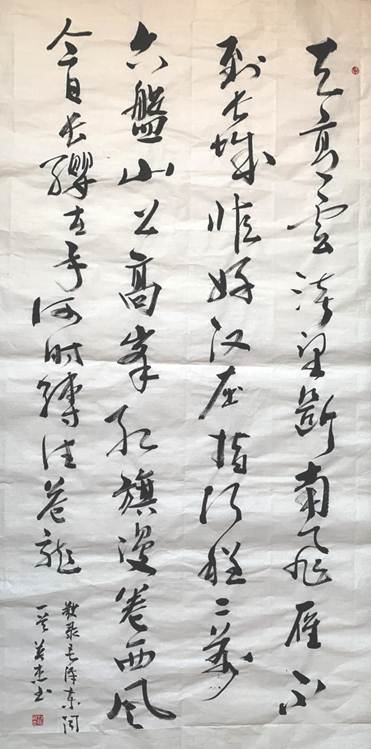 天高雲淡望斷南飛雁不
到长城非好汉屈指行程二萬
六盤山上高峯红旗漫卷西风
今日长缨在手何时缚住苍龍
敬录毛泽东词
书